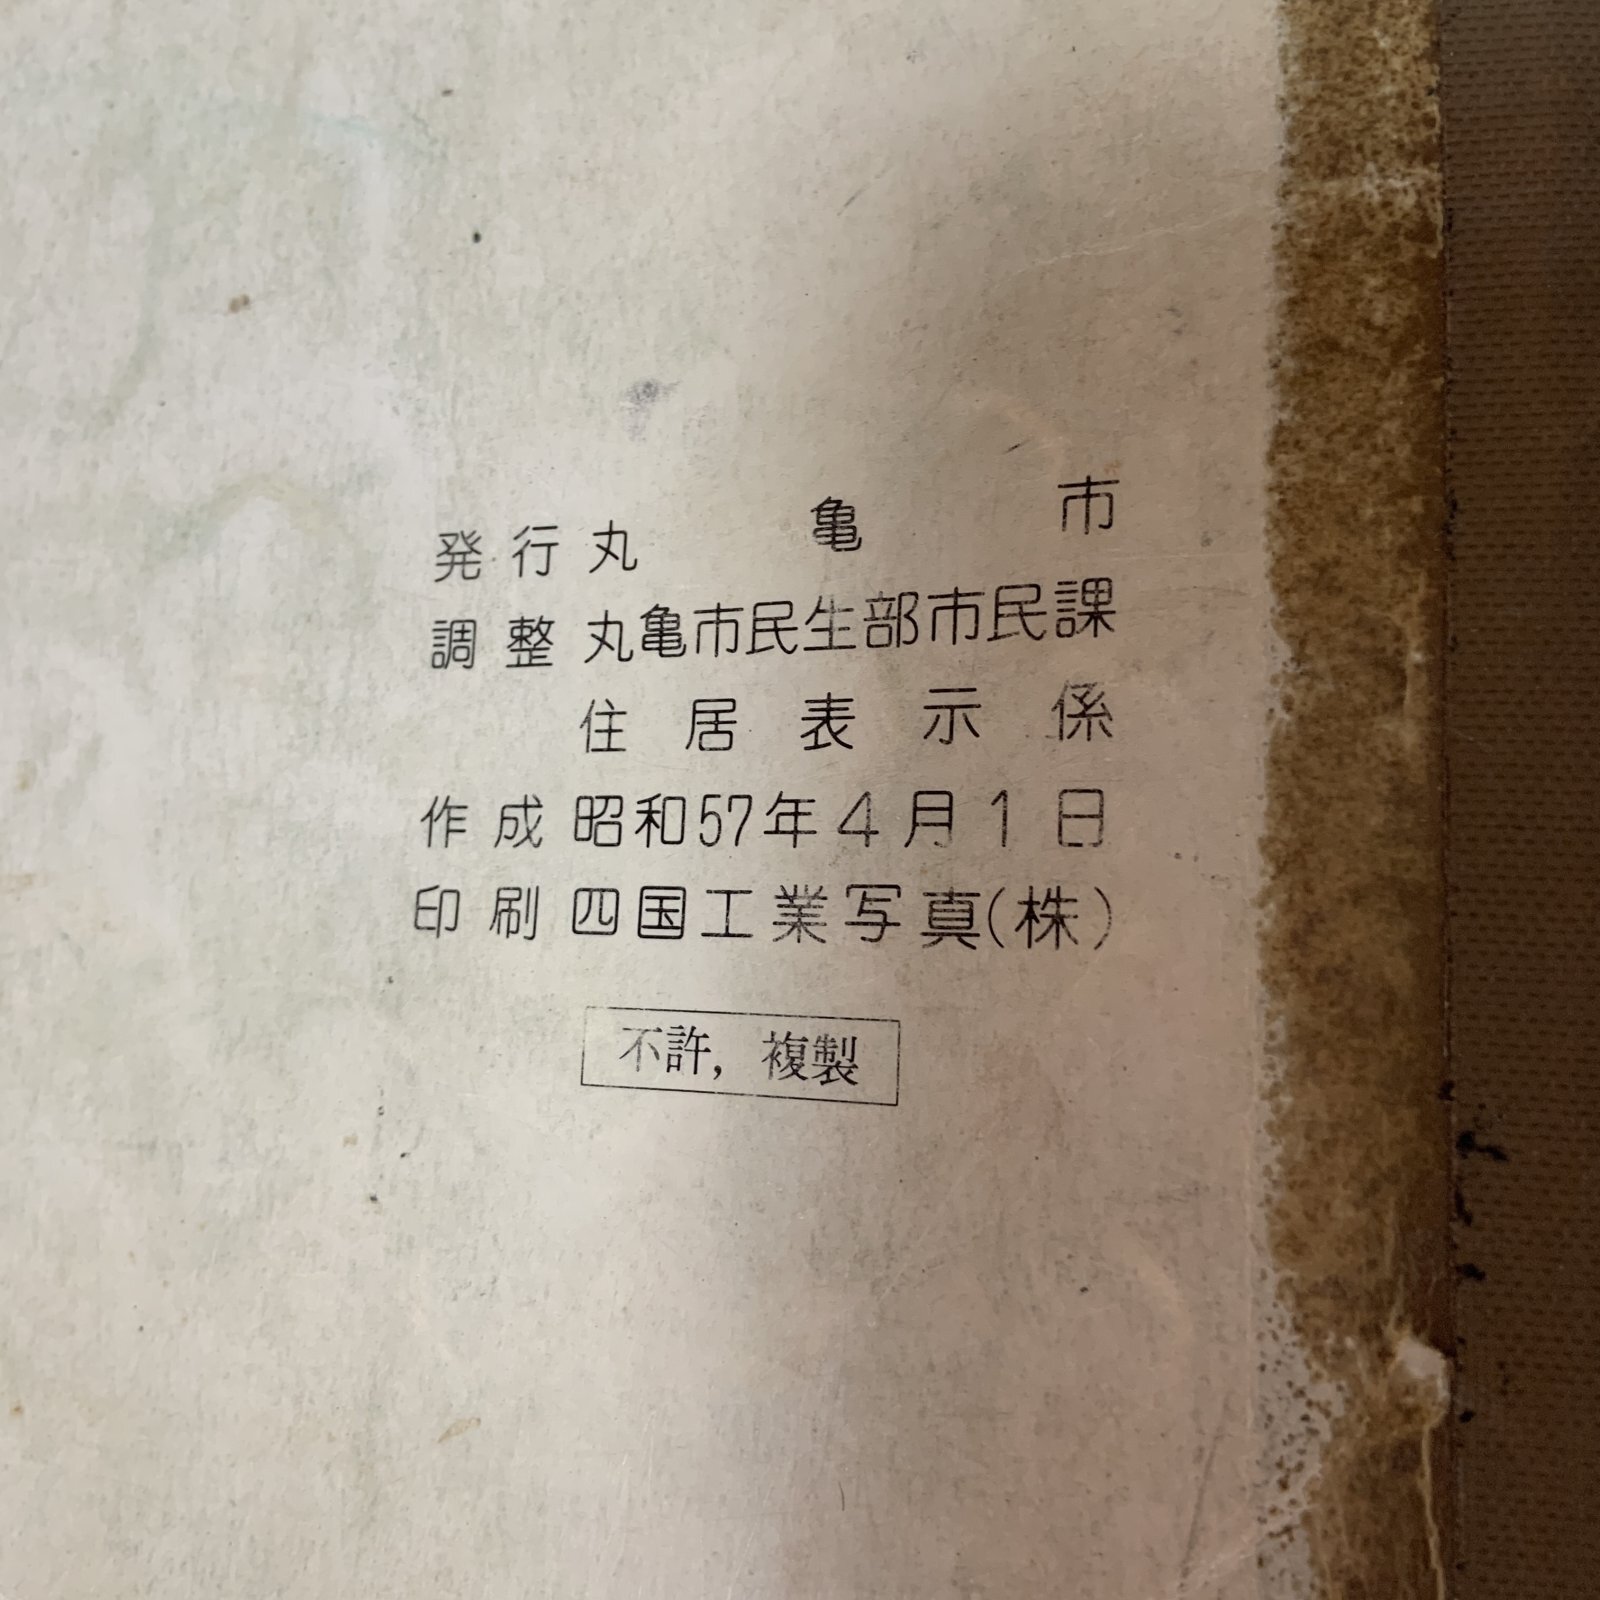 発行 丸亀市
調整 丸亀市民生部市民課
住居表示係
作成 昭和57年4月1日
印刷 四国工業写真(株)
不許，複製